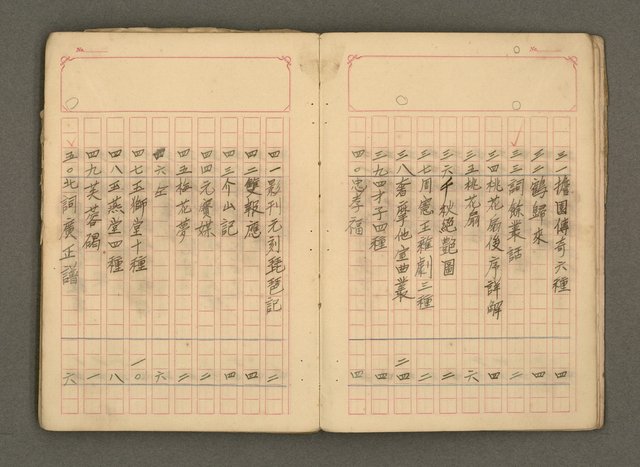 No.
三一擔圓傳奇六種 四
三二鶴歸來 四
三三詞餘叢話 二
三四桃花扇後序詳解 四
三五桃花扇 六
三六千秋絕艷圖 二
三七周憲王雜劇三種 二
三八奢摩他室曲叢 二四
三九四才子四種 四
四〇忠孝福 四
No.
四一影刊元刻琵琶記 二
四二雙報應 四
四三介山記 四
四四元寶媒 二
四五梅花夢 二
四六 六
四七玉獅堂十種 一〇
四八玉燕堂四種 八
四九芙蓉碣 一
五〇北詞廣正譜 六